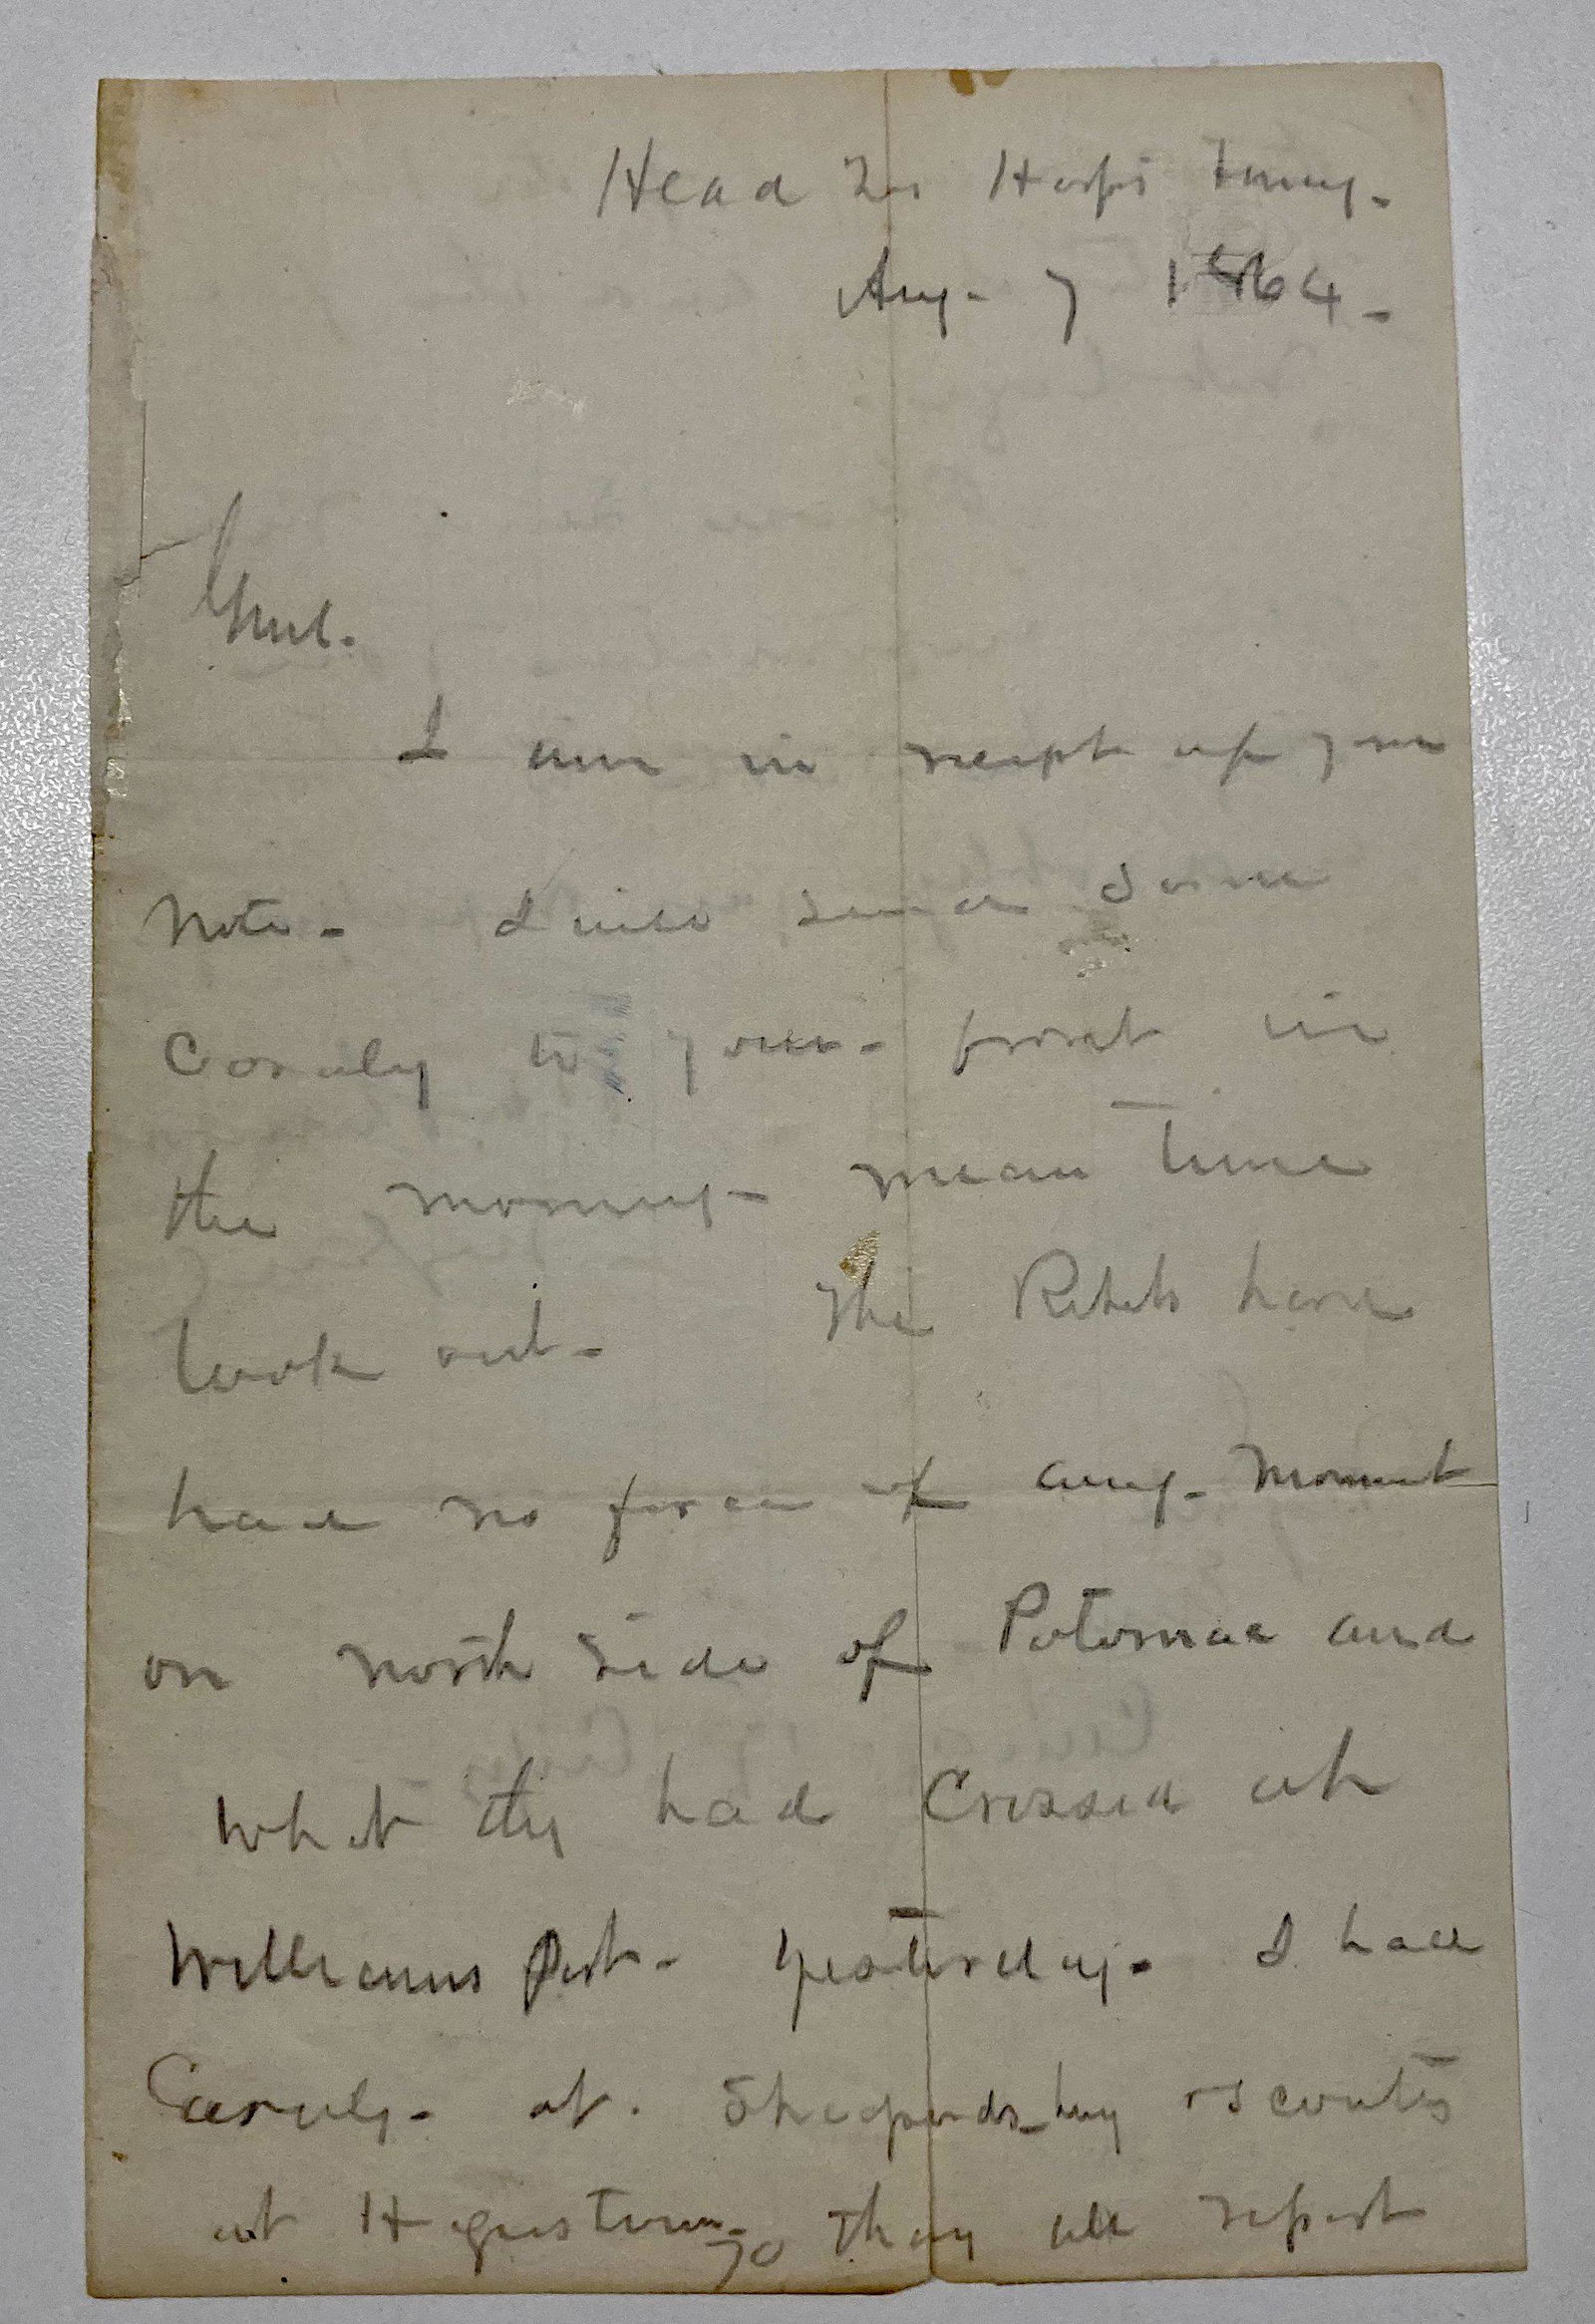 Head Qrs Harpers Ferry-
Aug- 7 1864-
Genl.
I am in receipt of your
Note- I will send some
Cavaly to your front in
the morning- mean time
look out- The Rebels have
have no force of any- moment
on north side of Potomac and
what they had Crossed at
Williams Port- yesterday- I have
Cavaly- at. Shepards-burg & scouts
at Hagerstown- They all report